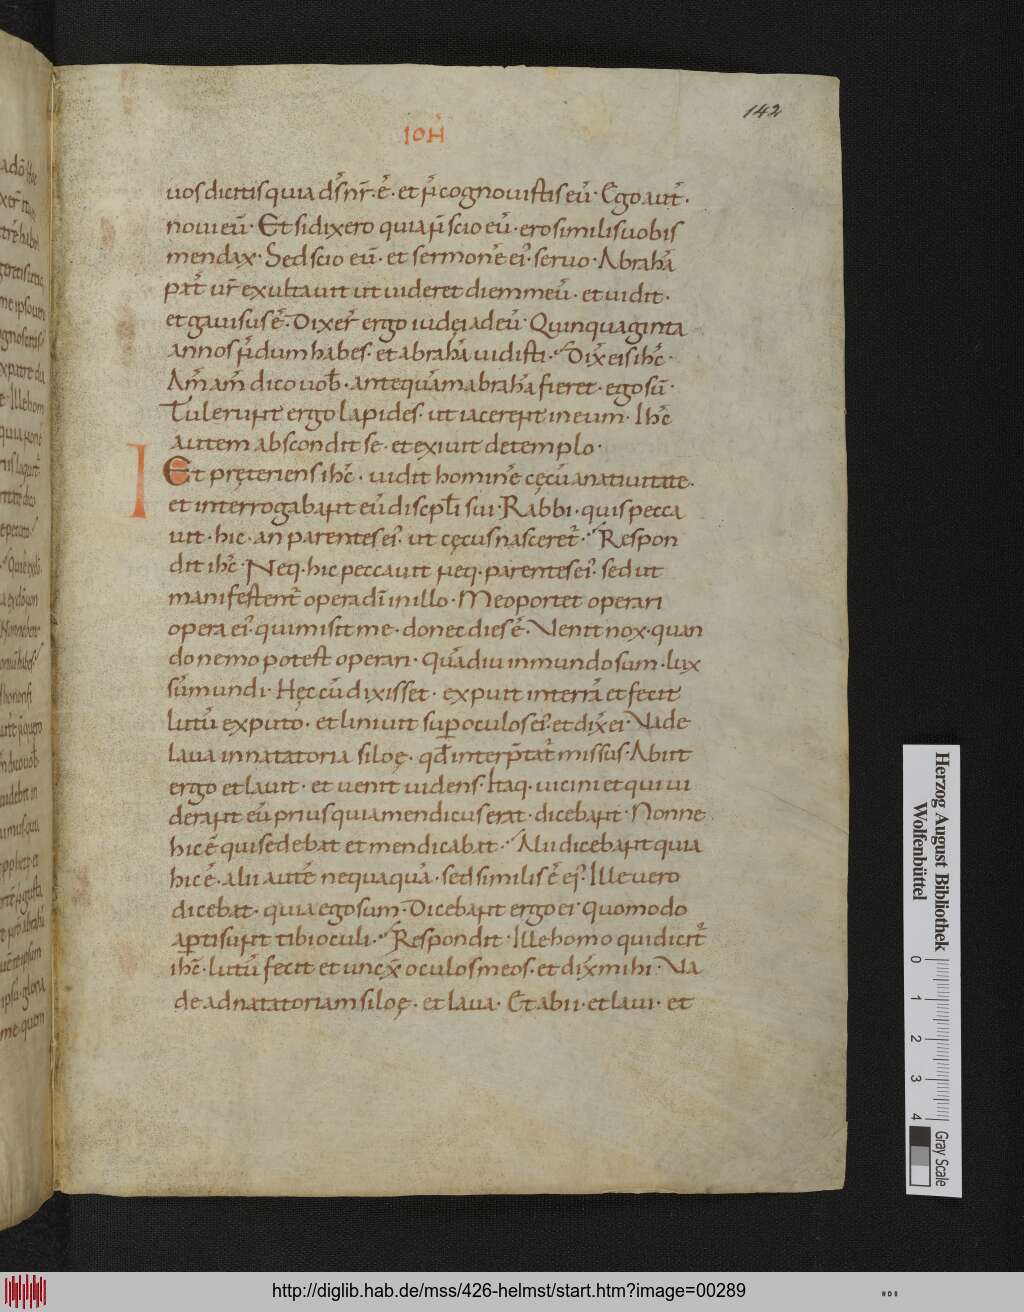 142
IOH̄
uos dicitis quia ds̄ nr̄ · ē · et ñ cognouistis eū · Ego aut̄ ·
noui eū · Et si dixero quia ñ scio eū · ero similis uobis
mendax · Sed scio eū · et sermonē ei' seruo · Abrahā
pat̄ ur̄ exultauit ut uideret diem meū · et uidit ·
et gauisus ē · Dixer̄ ergo iudei ad eū · Quinquaginta
annos ñdum habes · et abrahā uidisti · Dix̄ eis ihc̄ ·
Am̄ am̄ dico uob̄ · antequā abrahā fieret · ego sū ·
Tulerunt ergo lapides · ut iacerent in eum · Ihc̄
autem abscondit se · et exiuit de templo ·
I Et pręteriens ihc̄ · uidit hominē cęcū a natiuitate ·
et interrogabant eū discpl̄i sui · Rabbi · quis pecca
uit · hic · an parentes ei' · ut cęcus nasceret̄ · Respon
dit ihc̄ · Neq · hic peccauit neq · parentes ei' · sed ut
manifestent̄ opera dī in illo · Me oportet operari
opera ei' · qui misit me · donec dies ē · Uenit nox · quan
do nemo potest operari · Quādiu in mundo sum · lux
sū mundi · Hęc cū dixisset · expuit in terrā et fecit
lutū ex puto · et liniuit sup oculos ei' · et dix̄ ei · Uade
laua in natatoria siloę · qd̄ interp̄tat̄ missus · Abiit
ergo et lauit · et uenit uidens · Itaq · uicini et qui ui
derant eū prius quia mendicus erat · dicebant · Nonne
hic ē qui sedebat et mendicabat · Alii dicebant quia
hic ē · alii autē nequaquā · sed similis ē ei' · Ille uero
dicebat · quia ego sum · Dicebant ergo ei · Quomodo
apti sunt tibi oculi · Respondit · Ille homo qui dicit̄
ihc̄ · lutū fecit et uncx̄ oculos meos · et dix̄ mihi · Ua
de ad natatoriam siloę · et laua · Et abii · et laui · et
Herzog August Bibliothek
Wolfenbüttel
0 1 2 3 4
Gray Scale
http://diglib.hab.de/mss/426-helmst/start.htm?image=00289